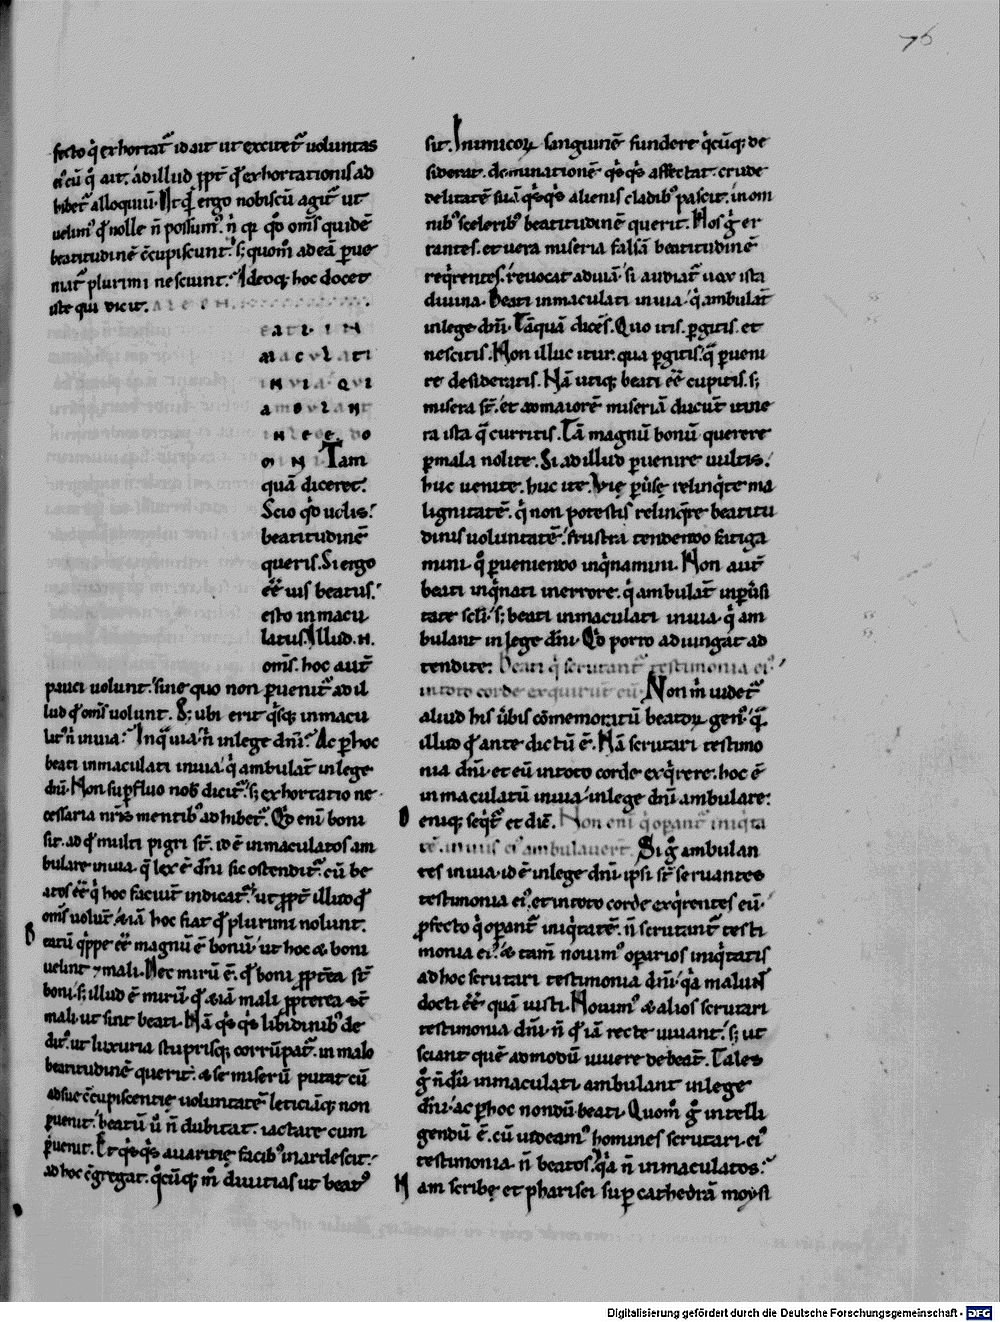 76
fecto q̇ exhortat᷑ id ait ut excitet᷑ uoluntas
ei᷒ cū q̇ ait. ad illud ꝓpt᷑ qđ exhortationis ad
hibet᷑ alloquiū. Ut qđ ergo nobiscū agit᷑ ut
uelim᷒ qđ nolle n̄ possum᷒.
beatitudinē c̄cupiscunt. s; quom̊ ad eā ꝑue
niat᷑ plurimi nesciunt. Ideoq; hoc docet
iste qui dicit.
eati in
maculati
in via. qui
ambulan
in lege do
mini. Tam
quā diceret.
Scio qđ uelis.
beatitudinē
queris. Si ergo
ēē uis beatus.
esto inmacu
latus. Illud .n.
om̄s. hoc aut̄
pauci uolunt. sine quo non ꝑuenit᷑ ad il
lud qđ om̄s uolunt. S; ubi erit q̇sq; inmacu
lat᷒ n̄ in uia. In qua uia n̄ in lege dn̄i. Ac ꝑ hoc
beati inmaculati in uia q̇ ambulant in lege
dn̄i. Non suꝑfluo nob̄ dicit᷑. s; exhortatio ne
cessaria nr̄is mentib᷒ adhibet᷑. Qđ enī boni
sit. ad qđ multi pigri st̄. id ē inmaculatos am
bulare in uia. q̄ lex ē dn̄i sic ostendit᷑. cū be
atos ēē q̇ hoc faciunt indicat᷑. ut ꝓpt᷑ illud qđ
om̄s uolunt. etiā hoc fiat qđ plurimi nolunt.
B
eatū q̇ppe ēē magnū ē bonū. ut hoc & boni
uelint ⁊ mali. Nec mirū ē. qđ boni ꝓpt̄ea st̄
boni. s; illud ē mirū. qđ etiā mali ꝓpterea st̄
mali ut sint beati. Nā q̇sq̇s libidinib᷒ de
dit᷒. ut luxuria stuprisq; corrūpat᷑. in malo
beatitudinē querit. & se miserū putat cū
ad sue c̄cupiscentię uoluntatē leticiāq; non
ꝑuenit. beatū u̇ n̄ dubitat. iactare cum
ꝑuenit. Et q̇sq̇s auaritię facib᷒ inardescit.
ad hoc c̄gregat. q̇cūq; m̊ diuitias ut beat᷒
sit. Inimicoꝝ sanguinē fundere q̇cūq; de
siderat. dominationē q̇sq̇s affectat. crude
delitatē suā q̇sq̇s alienis cladib᷒ pascit. in om
nib᷒ sceleribus beatitudinē querit. Hos ġ er
rantes. et uera miseria falsā beatitudinē
req̇rentes. reuocat ad uiā. si audiat᷑ uox ista
diuina. Beati inmaculati in uia q̇ ambulant̄
in lege dn̄i. Tāquā dicēs. Quo itis. ꝑgitis. et
nescitis. Non illuc itur. qua ꝑgitis. q̄ ꝑueni
re desideratis. Nā utiq; beati ēē cupitis. s;
misera st̄. et ad maiorē miseriā ducūt itine
ra ista q̄ curritis. Tā magnū bonū querere
ꝑ mala nolite. Si ad illud ꝑuenire uultis.
huc uenite. huc ite. Vię ꝑūsę relinq̇te ma
lignitatē. q̇ non potestis relinq̇re beatitu
dinis uoluntatē. frustra tendendo fatiga
mini. q̊ ꝑueniendo inq̇namini. Non aut̄
beati inq̇nati in errore. q̇ ambulant in ꝑūsi
tate scl̄i. s; beati inmaculati in uia. q̇ am
bulant in lege dn̄i. Qđ porro adiungat ad
tendite: Beati q̇ scrutant᷑ testimonia ei᷒
in toto corde exquirunt eū. Non m̄ uidet᷑
aliud his ūbis cōmemoratū beatoꝝ gen᷒. q̄
illud qđ ante dictū ē. Nā scrutari testimo
nia dn̄i et eū in toto corde exq̇rere. hoc ē
inmaculatū in uia. in lege dn̄i ambulare:
D
eniq; seq̇t᷑ et dic̄. Non enī q̇ opant᷑ iniq̇ta
tē. in uiis ei᷒ ambulauert. Si ġ ambulan
tes in uia. id ē in lege dn̄i. ipsi st̄ seruantes
testimonia ei᷒. et in toto corde exq̇rentes eū.
ꝓfecto q̇ opant᷑ iniq̇tatē. n̄ scrutant᷑ testi
monia ei᷒. & tam̄ nouim᷒ oꝑarios iniq̇tatis
ad hoc scrutari testimonia dn̄i. q̇a malunt̄
docti ēē. quā iusti. Nouim᷒ & alios scrutari
testimonia dn̄i. n̄ qđ iā recte uiuant. s; ut
sciant quē admodū uiuere debeant. Tales
ġ n̄dū inmaculati ambulant in lege
dn̄i. ac ꝑ hoc nondū beati. Quom̊ ġ intelli
gendū ē. cū uideam᷒ homines scrutari ei᷒
testimonia. n̄ beatos. q̇a n̄ inmaculatos:
N
am scribę et pharisei suꝑ cathedrā moysi
Digitalisierung gefördert durch die Deutsche Forschungsgemeinschaft - DFG